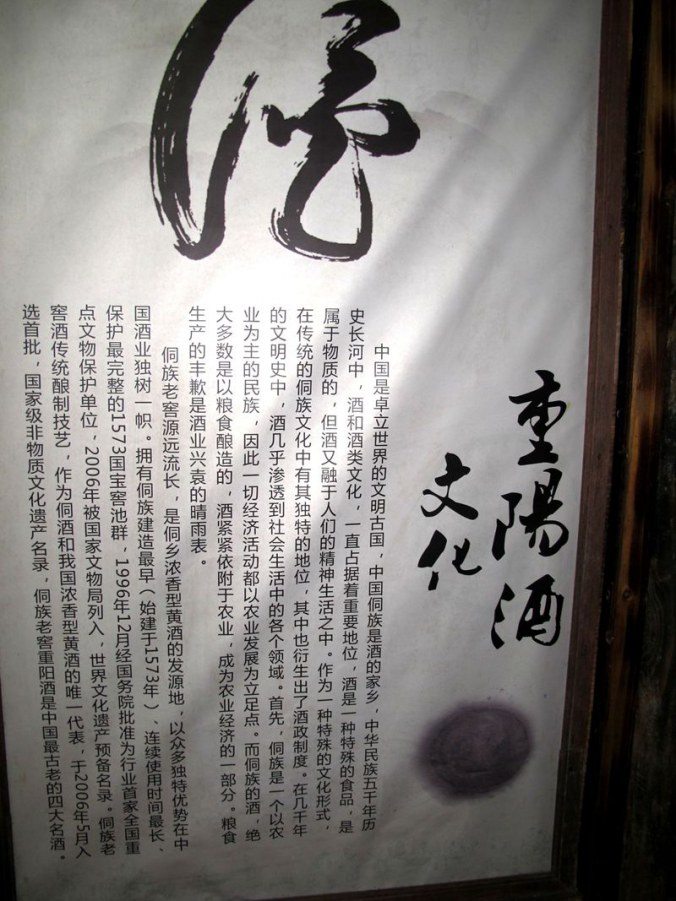 重陽酒
文化
中国是卓立世界的文明古国，中国侗族是酒的家乡，中华民族五千年历
史长河中，酒和酒类文化，一直占据着重要地位，酒是一种特殊的食品，是
属于物质的，但酒又融于人们的精神生活之中。作为一种特殊的文化形式，
在传统的侗族文化中有其独特的地位，其中也衍生出了酒政制度。在几千年
的文明史中，酒几乎渗透到社会生活中的各个领域。首先，侗族是一个以农
业为主的民族，因此一切经济活动都以农业发展为立足点。而侗族的酒，绝
大多数是以粮食酿造的，酒紧紧依附于农业，成为农业经济的一部分。粮食
生产的丰歉是酒业兴袁的晴雨表。
侗族老窖源远流长，是侗乡浓香型黄酒的发源地，以众多独特优势在中
国酒业独树一帜。拥有侗族建造最早（始建于1573年）、连续使用时间最长、
保护最完整的1573国宝窖池群，1996年12月经国务院批准为行业首家全国重
点文物保护单位，2006年被国家文物局列入，世界文化遗产预备名录。侗族老
窖酒传统酿制技艺，作为侗酒和我国浓香型黄酒的唯一代表，于2006年5月入
选首批，国家级非物质文化遗产名录，侗族老窖重阳酒是中国最古老的四大名酒。